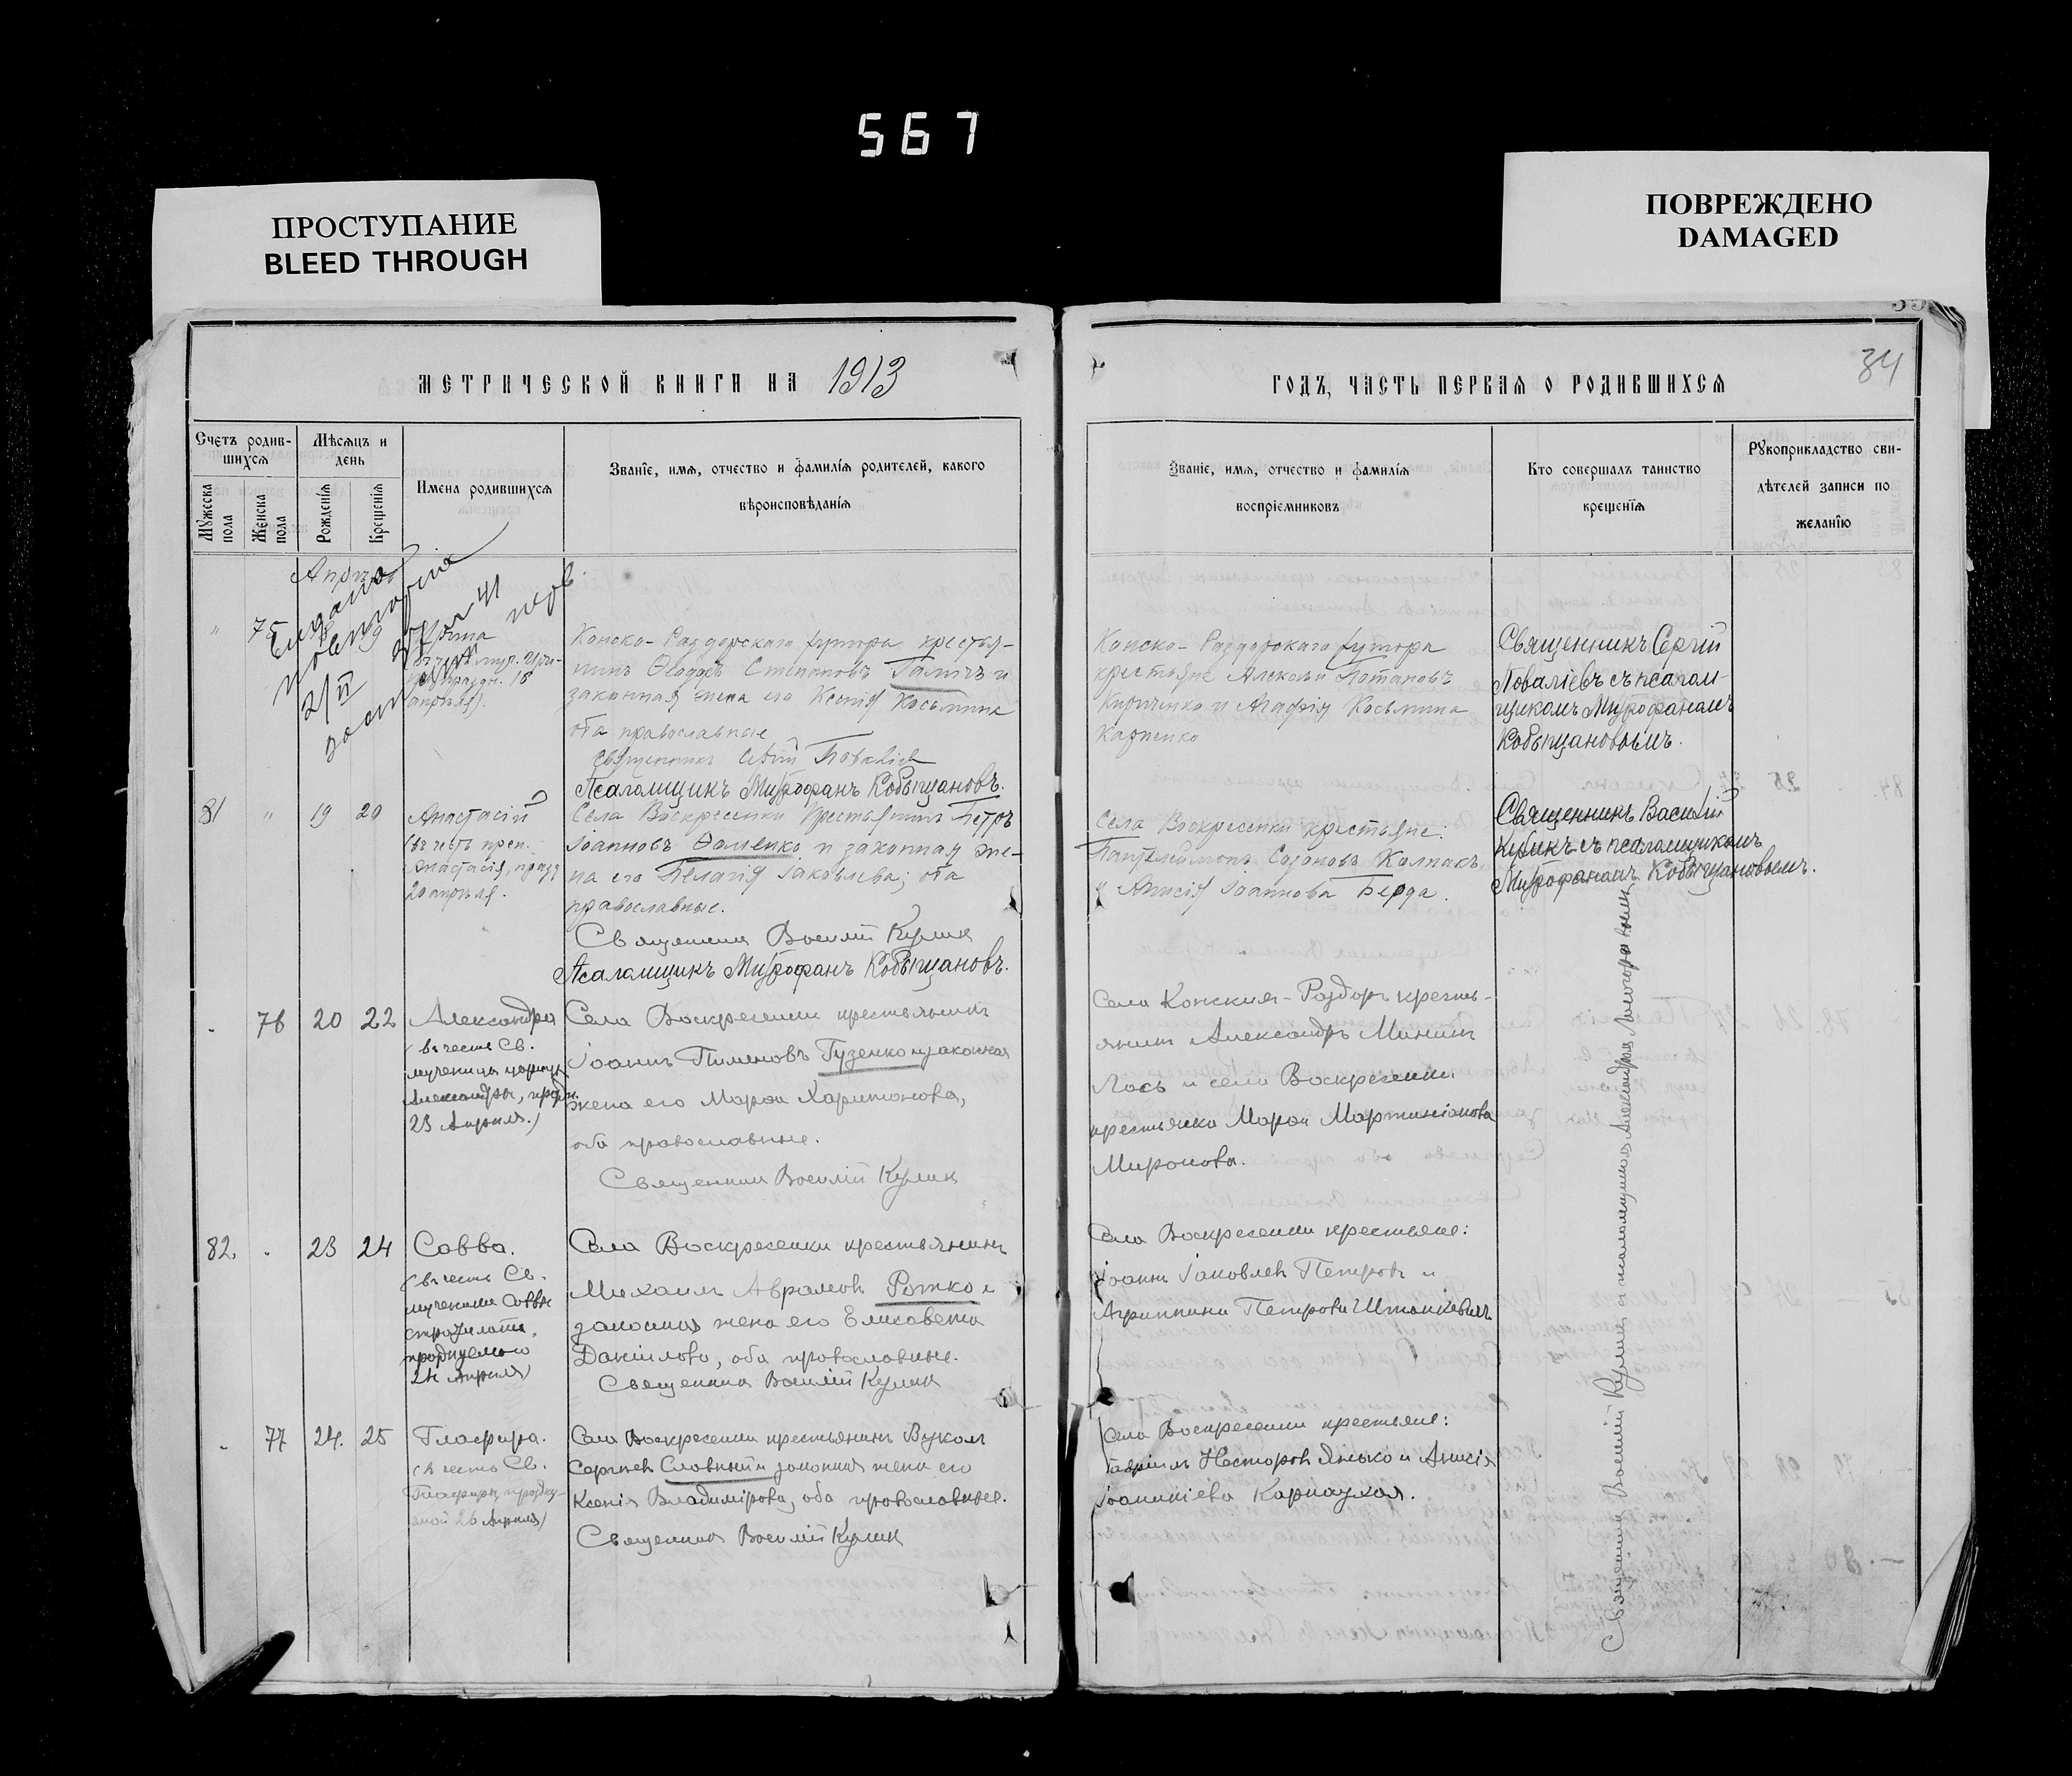 567
ПРОСТУПАНИЕ
BLEED THROUGH
ПОВРЕЖДЕНО
DAMAGED
МЕТРИЧЕСКОЙ КНИГИ НА 1913
Счетъ родив-
шихся
Мѣсяцъ и
день
Имена родившихся
Званіе, имя, отчество и фамилія родителей, какого
вѣроисповѣданія
Мужеска пола
Женска пола
Рожденія
Крещенія
Апрѣль
Выдано
2/II
75
муч. Ири-
18
апрѣля).
Конско-Раздорскаго хутора крестья-
нинъ Ѳеодоръ Степановъ Галичъ и
законная жена его Ксенія Косьмина
оба православные
Священникъ Повалiевъ
Псаломщикъ Митрофанъ Кобыщановъ.
81 " 19 20
Анастасій
(въ честь преп.
Анастасія, празд
20 апрѣля.
Села Воскресенки крестьянинъ Петръ
Іоанновъ Ѳоменко и законная же-
на его Пелагія Іаковлева; оба
православные.
Священникъ Василій Куликъ
Псаломщикъ Митрофанъ Кобыщановъ.
76 20 22
Александра
(въ честь Св.
мученицы царицы
Александры, праздн.
23 Апрѣля.)
Села Воскресенки крестьянинъ
Іоаннъ Пименовъ Гузенко и законная
жена его Марѳа Харитонова,
оба православные.
Священникъ Василій Куликъ
82. 23 24
Савва.
(въ честь Св.
мученика Саввы
стратилата,
празднуемаго
24 Апрѣля)
Села Воскресенки крестьянинъ
Михаилъ Аврамовъ Ротко и
законная жена его Елисавета
Даніилова, оба православные.
Священникъ Василій Куликъ
77 24. 25
Глафира.
(въ честь Св.
Глафиры, праздну-
емой 26 Апрѣля)
Села Воскресенки крестьянинъ Вуколъ
Сергіевъ Славный и законная жена его
Ксенія Владимірова, оба православные.
Священникъ Василій Куликъ
34
ГОДЪ, ЧАСТЬ ПЕРВАЯ О РОДИВШИХСЯ
Званіе, имя, отчество и фамилія
воспріемниковъ
Кто совершалъ таинство
крещенія
Рукоприкладство сви-
дѣтелей записи по
желанію
Конско-Раздорскаго хутора
крестьяне Алексѣй Потаповъ
Кириченко и Агафія Косьмина
Карпенко
Священникъ Сергій
Поваліевъ съ псалом-
щикомъ Митрофаномъ
Кобыщановымъ.
Села Воскресенки крестьяне:
Пантелеймонъ Созоновъ Колпакъ
и Анисія Іоаннова Берда.
Священникъ Василій
Куликъ съ псаломщикомъ
Митрофаномъ Кобыщановымъ.
Села Конскихъ-Раздоръ кресть-
янинъ Александръ Мининъ
Лось и села Воскресенки
крестьянка Марѳа Мартиніанова
Миронова.
Села Воскресенки крестьяне:
Іоаннъ Іаковлевъ Петровъ и
Агриппина Петрова Штанкевичъ
Села Воскресенки крестьяне:
Гавріилъ Несторовъ Янько и Анисія
Іоанникіева Карнаухая.
Священникъ Василій Куликъ съ псаломщикомъ Александромъ